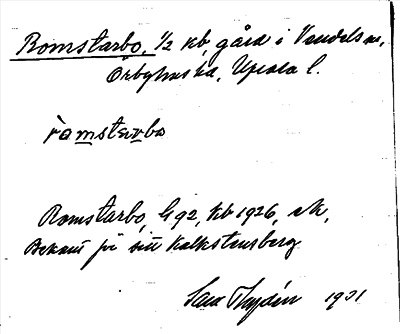 Romstarbo, 1/2 kb, gård i Vendels sn,
Örbyhus hd, Upsala l.
ràmstarbo
Romstarbo, G 92, kb 1926, ek,
Bekant på sitt kalkstensberg
Sam Thydén 1931